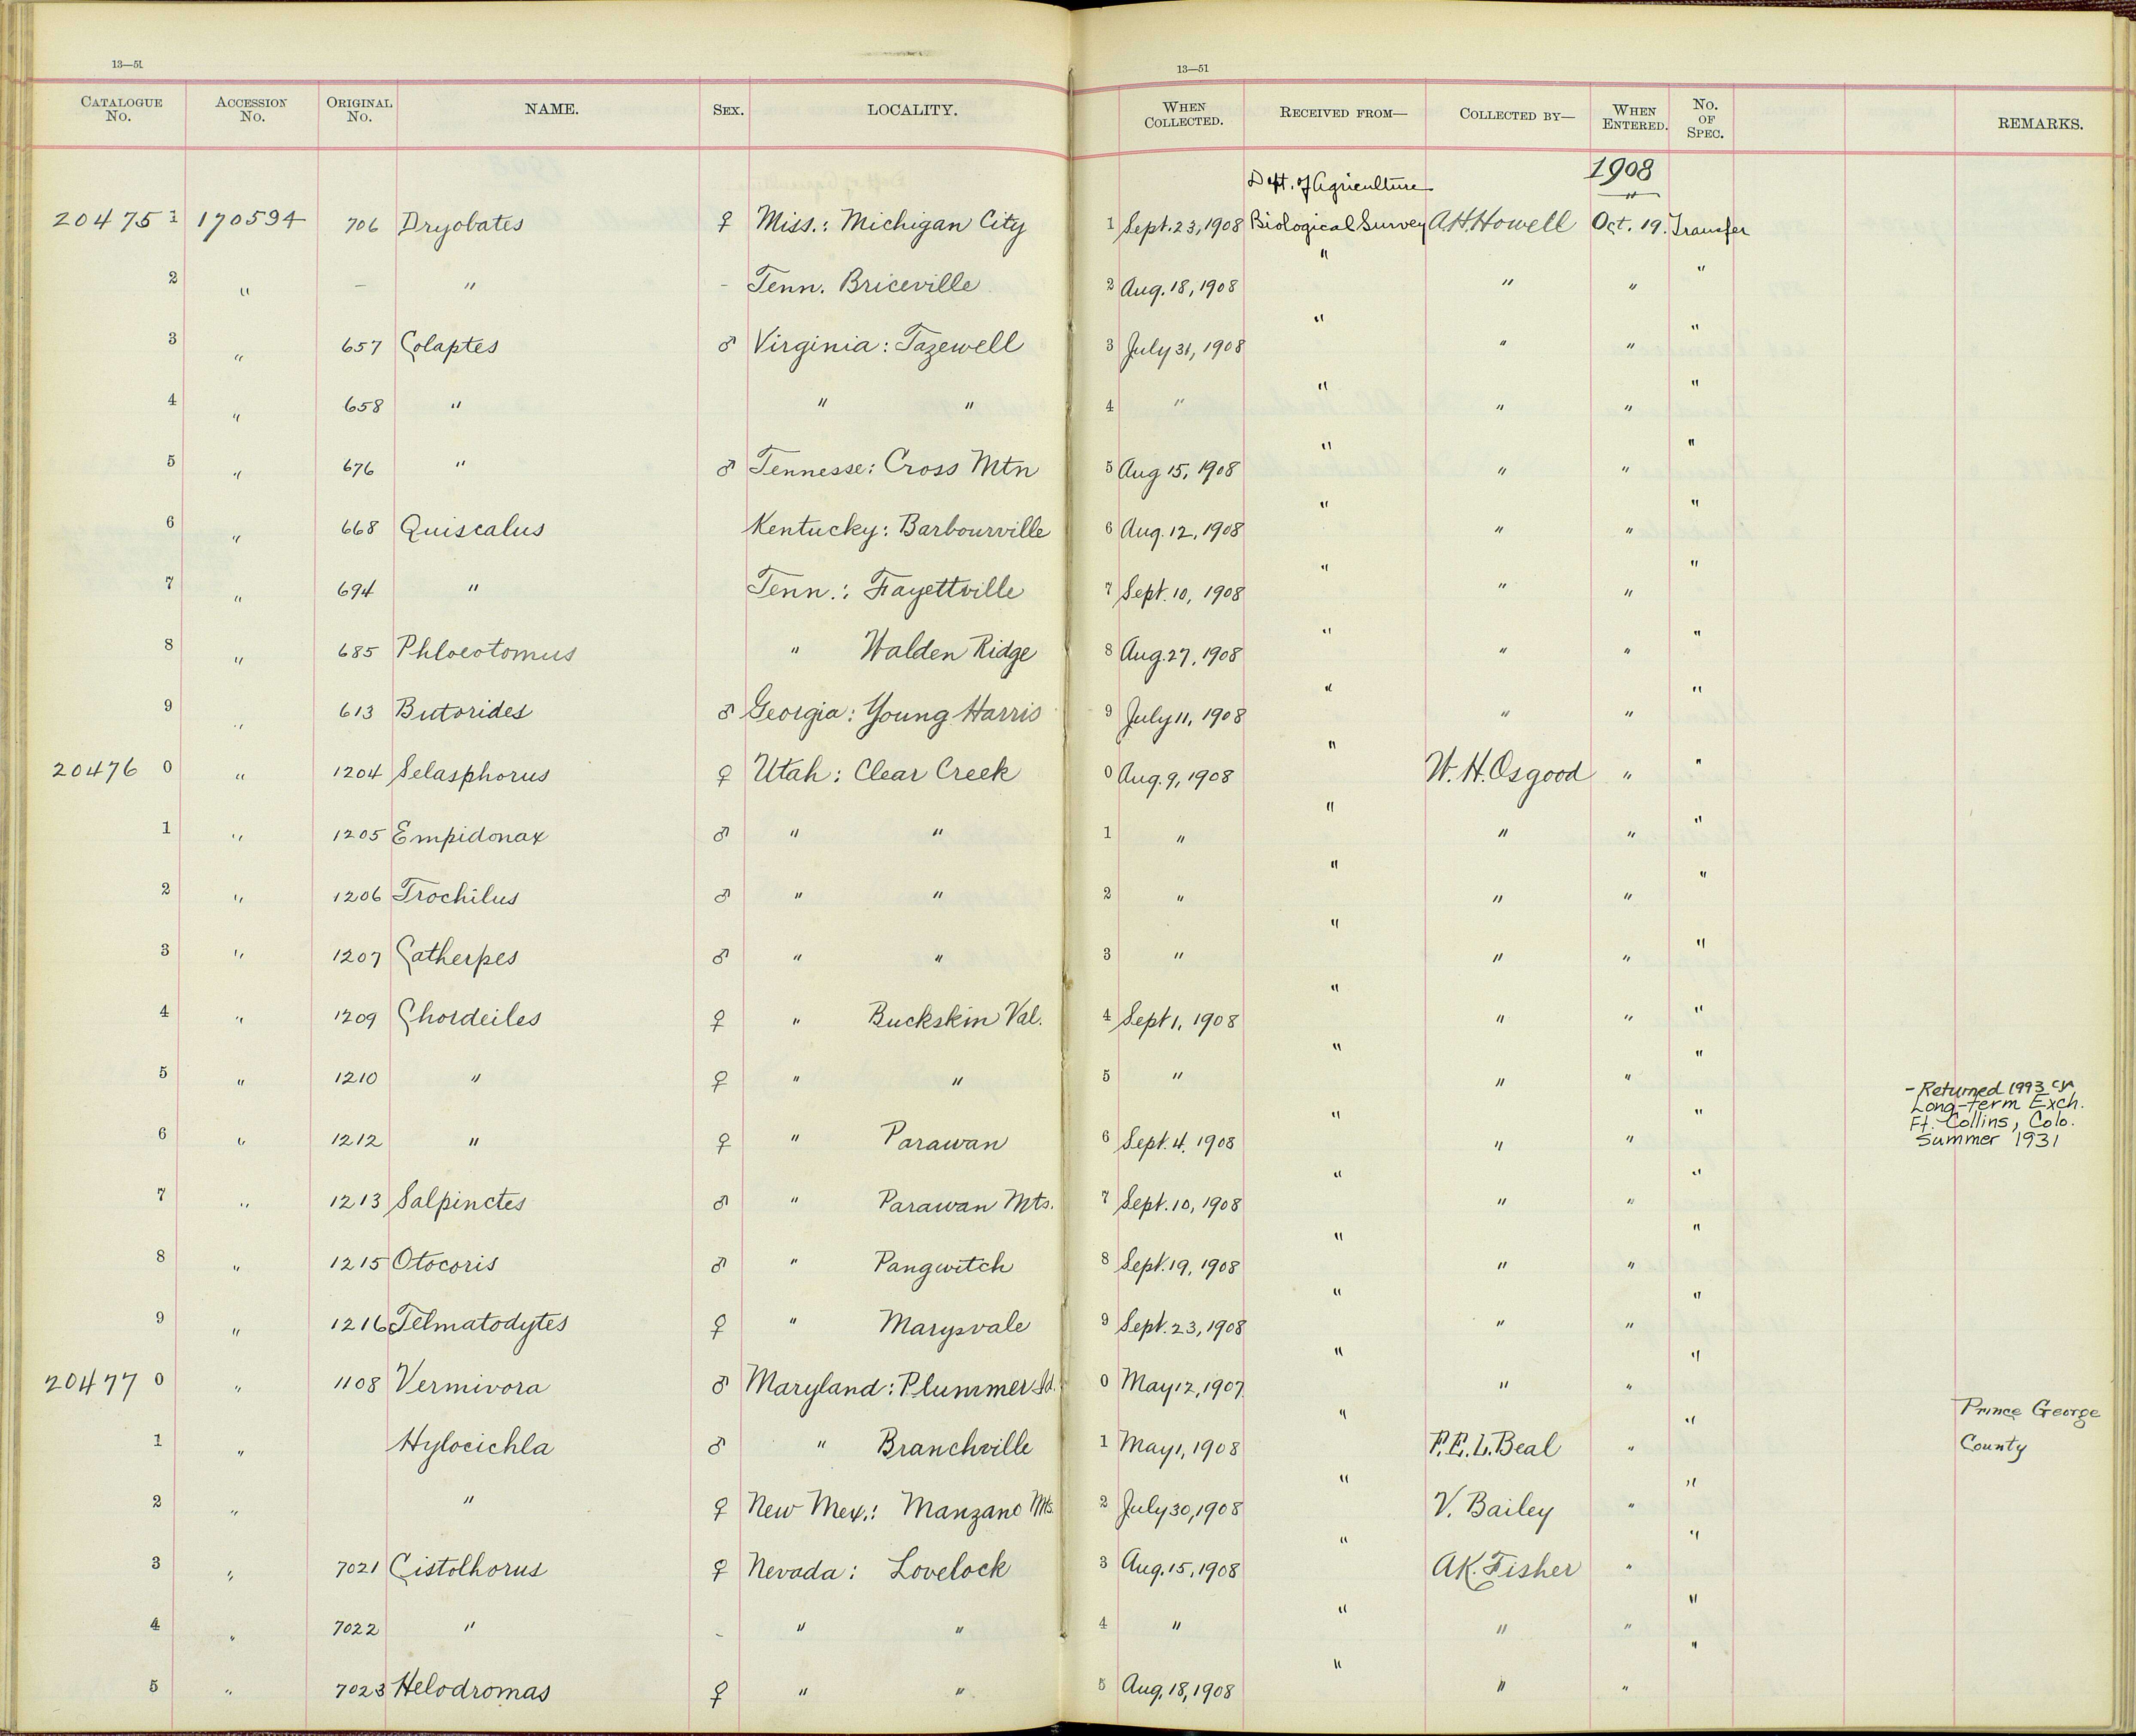 13—51 13—51
CATALOGUE No. ACCESSION No. ORIGINAL No. NAME. SEX. LOCALITY. WHEN COLLECTED. RECEIVED FROM— COLLECTED BY— WHEN ENTERED. No. OF SPEC. REMARKS.
1908
Dept. of Agriculture
204751 170594 706 Dryobates ♀ Miss.: Michigan City 1 Sept. 23, 1908 Biological Survey A.H. Howell Oct. 19. Transfer
2 " – " – Tenn. Briceville 2 Aug. 18, 1908 " " " "
3 " 657 Colaptes ♂ Virginia: Tazewell 3 July 31, 1908 " " " "
4 " 658 " " " 4 " " " " "
5 " 676 " ♂ Tennesse: Cross Mtn 5 Aug 15, 1908 " " " "
6 " 668 Quiscalus Kentucky: Barbourville 6 Aug. 12, 1908 " " " "
7 " 694 " Tenn.: Fayettville 7 Sept. 10, 1908 " " " "
8 " 685 Phloeotomus " Walden Ridge 8 Aug. 27, 1908 " " " "
9 " 613 Butorides ♂ Georgia: Young Harris 9 July 11, 1908 " " " "
20476 0 " 1204 Selasphorus ♀ Utah: Clear Creek 0 Aug. 9, 1908 " W. H. Osgood " "
1 " 1205 Empidonax ♂ " " 1 " " " " "
2 " 1206 Trochilus ♂ " " 2 " " " " "
3 " 1207 Catherpes ♂ " " 3 " " " " "
4 " 1209 Chordeiles ♀ " Buckskin Val. 4 Sept 1, 1908 " " " "
5 " 1210 " ♀ " " 5 " " " " "
– Returned 1993
Long-term Exch.
Ft. Collins, Colo.
Summer 1931
6 " 1212 " ♀ " Parawan 6 Sept. 4, 1908 " " " "
7 " 1213 Salpinctes ♂ " Parawan Mts. 7 Sept. 10, 1908 " " " "
8 " 1215 Otocoris ♂ " Pangwitch 8 Sept. 19, 1908 " " " "
9 " 1216 Telmatodytes ♀ " Marysvale 9 Sept. 23, 1908 " " " "
20477 0 " 1108 Vermivora ♂ Maryland: Plummer Id. 0 May 12, 1907 " " " "
Prince George
1 " Hylocichla ♂ " Branchville 1 May 1, 1908 " F. E. L. Beal " " County
2 " " ♀ New Mex.: Manzano Mts. 2 July 30, 1908 " V. Bailey " "
3 " 7021 Cistolhorus ♀ Nevada: Lovelock 3 Aug. 15, 1908 " A.K. Fisher " "
4 " 7022 " – " " 4 " " " " "
5 " 7023 Helodromas ♀ " " 5 Aug. 18, 1908 " " " "